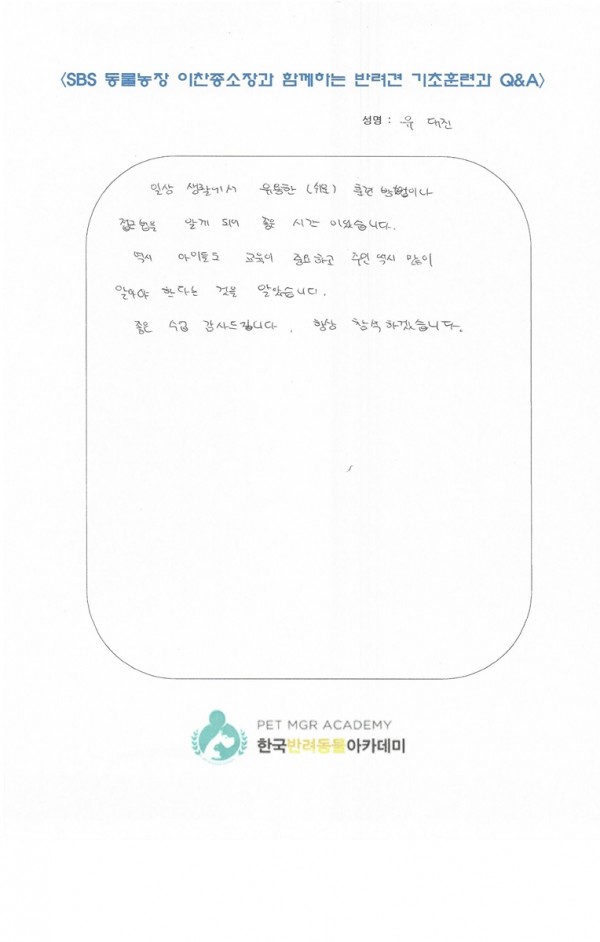 <SBS 동물농장 이찬종소장과 함께하는 반려견 기초훈련과 Q&A>
성명 : 유 대진
일상 생활에서 유용한 (쉬운) 훈련 방법이나
접근법을 알게 되어 좋은 시간 이었습니다.
역시 아이들도 교육이 중요하고 주인 역시 많이
알아야 한다는 것을 알았습니다.
좋은 수업 감사드립니다. 항상 참석하겠습니다.
PET MGR ACADEMY
한국반려동물아카데미